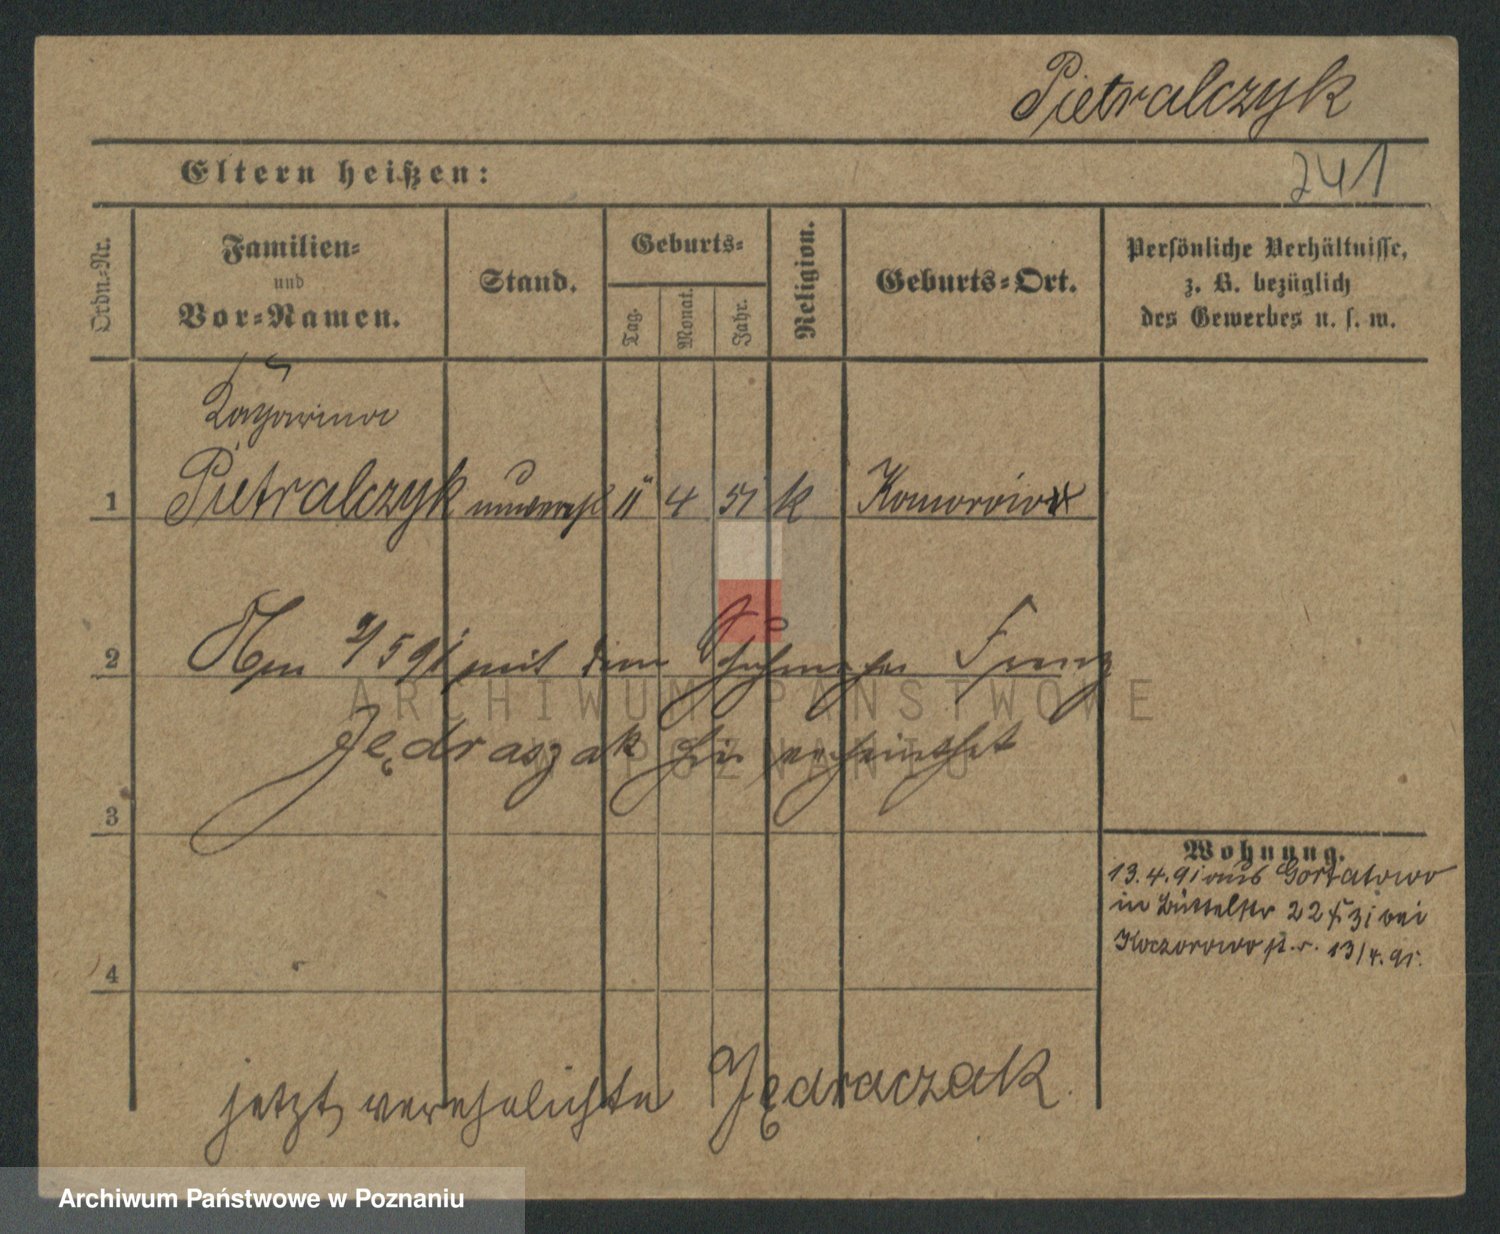 Pietralczyk
Eltern heißen:
241
Ordn.-Nr.
Familien-
und
Vor-Namen.
Stand.
Geburts-
Tag.
Monat.
Jahr.
Religion.
Geburts-Ort.
Persönliche Verhältnisse,
z. B. bezüglich
des Gewerbes u. s. w.
Katharina
1 Pietralczyk unvereh 11 4 51 k Komorowo
2 Am 9/5 91 mit dem Schuhmacher Franz
Jędraszak hier verheirathet
3
Wohnung.
13.4.91 aus Gortatowo
in Büttelstr 22 bei
Koczorowo 13/4.91.
4
jetzt verehelichte Jędraczak.
ARCHIWUM PAŃSTWOWE
W POZNANIU
Archiwum Państwowe w Poznaniu